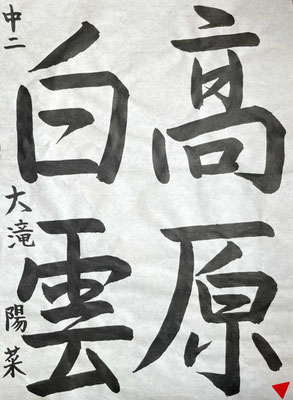 高原
白雲
中二 大滝 陽菜